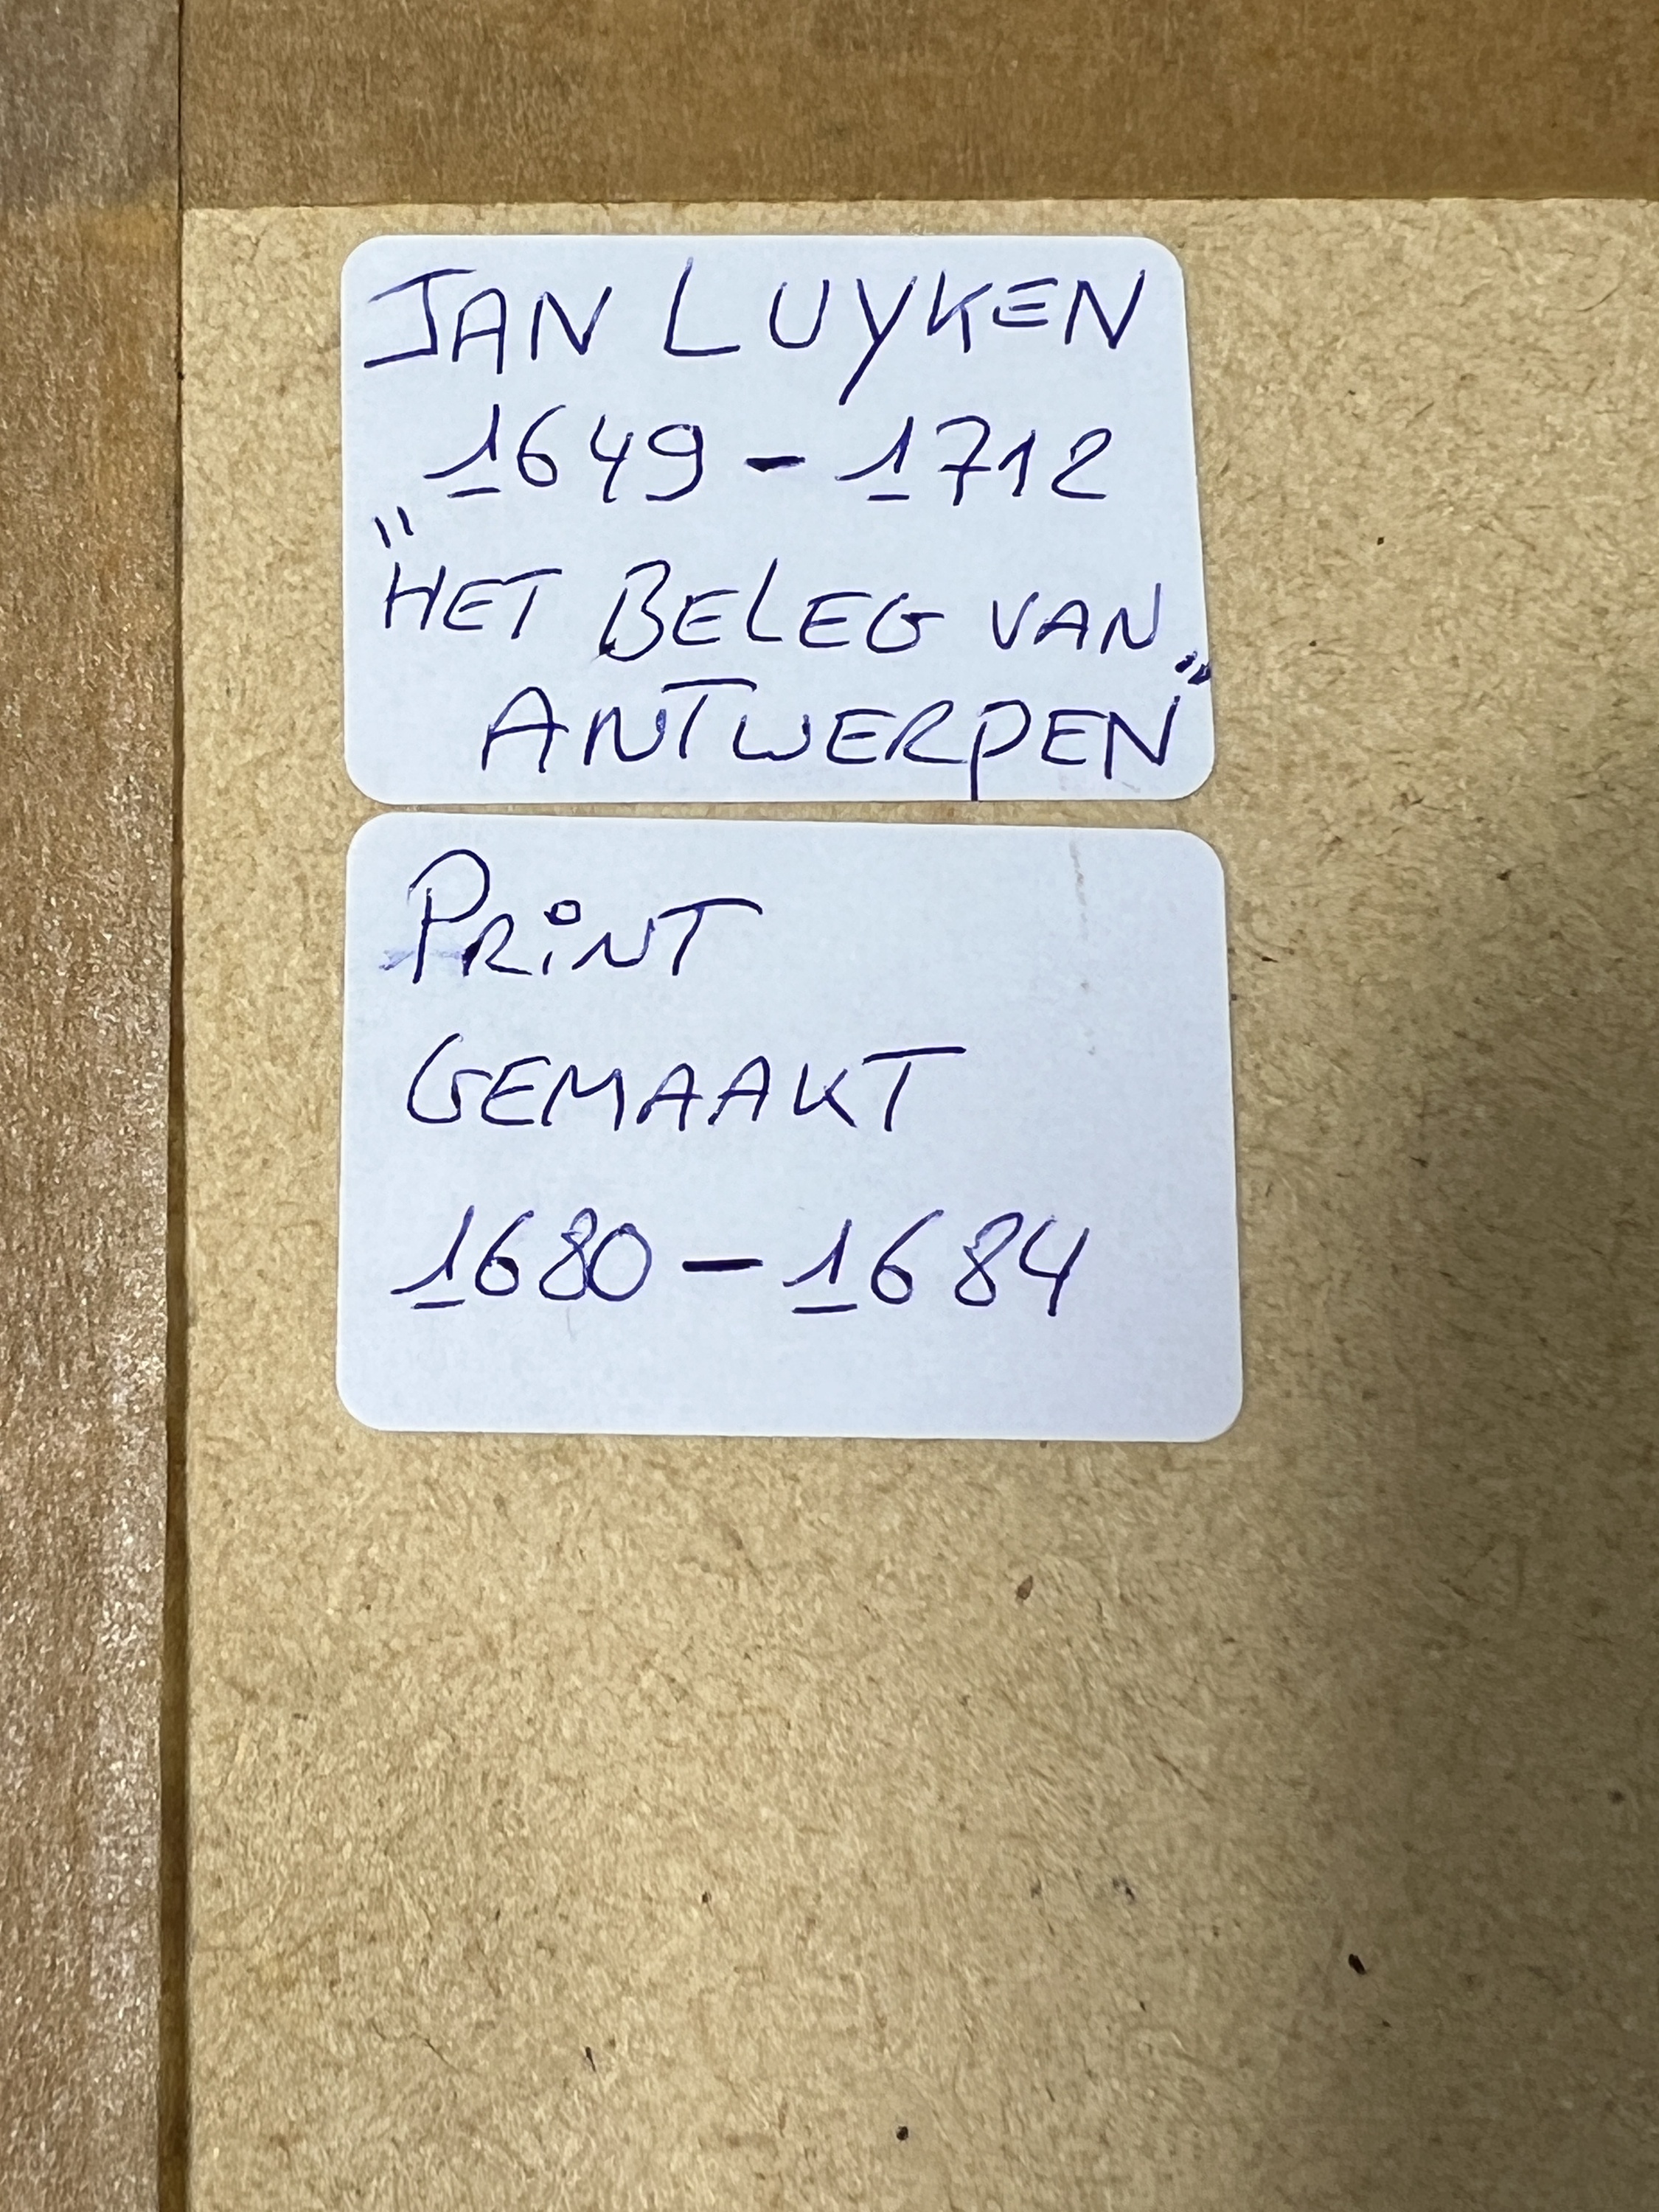 JAN LUYKEN
1649 - 1712
"HET BELEG VAN
ANTWERPEN"
PRiNT
GEMAAKT
1680 - 1684